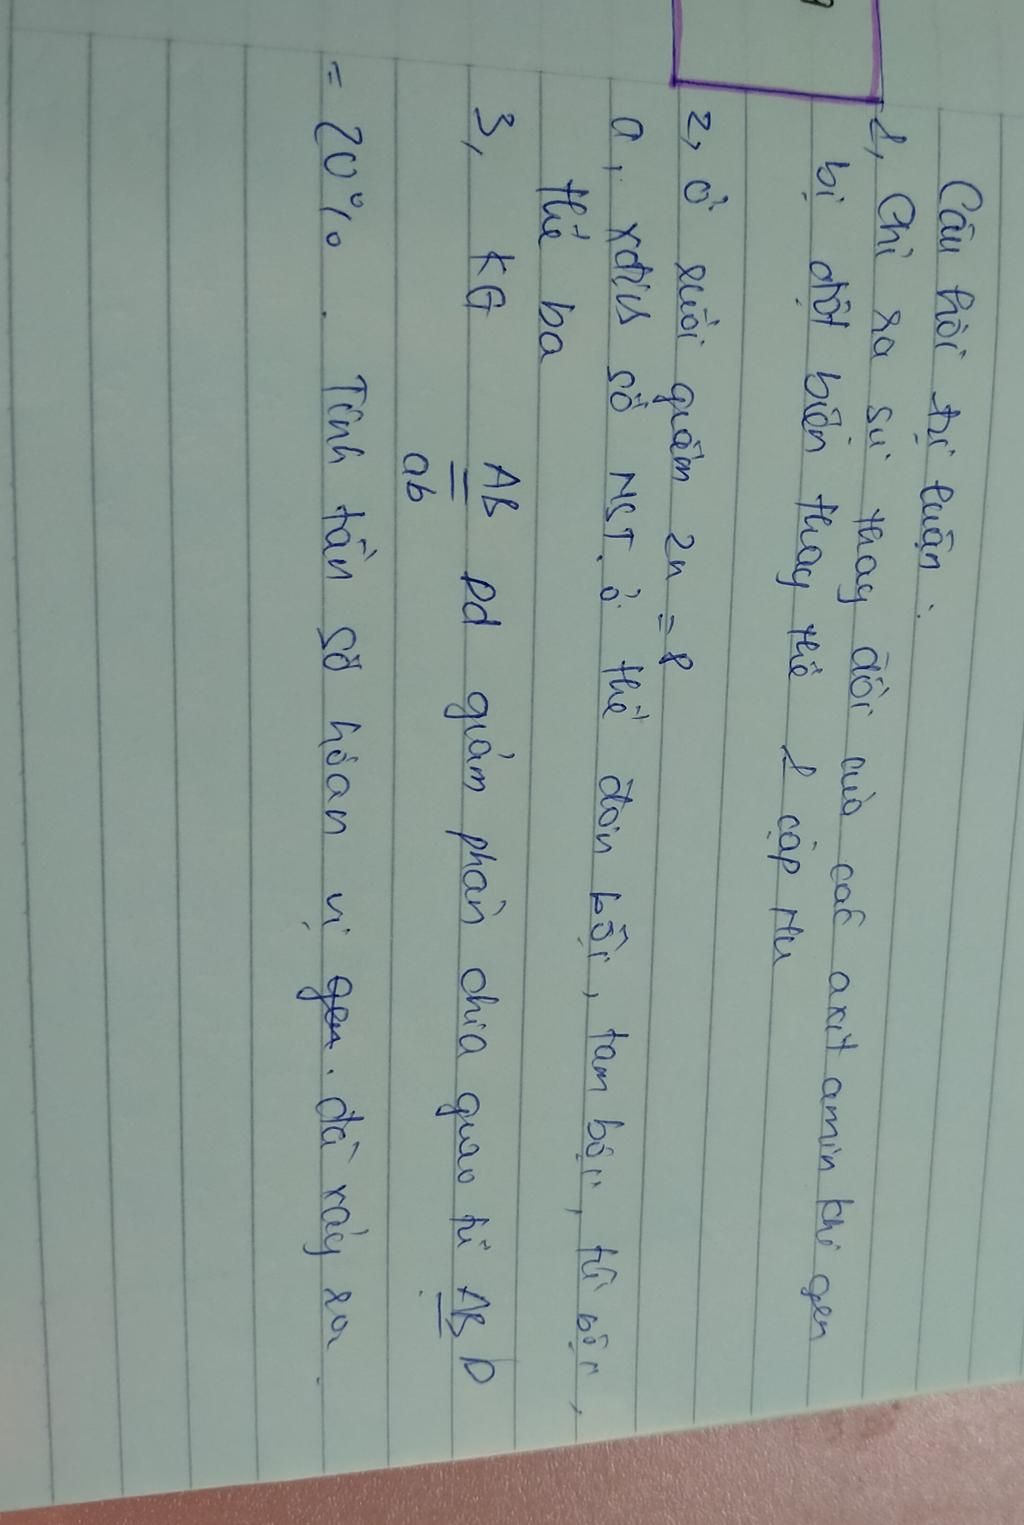 Câu hỏi tự luận :
1, Chỉ ra sự thay đổi của các axit amin khi gen
bị đột biến thay thế 1 cặp Nu
2, Ở ruồi giấm 2n = 8
a, xđịnh số NST ở thể đơn bội, tam bội, tứ bội,
thể ba
3, KG AB/ab Dd giảm phân chia giao tử AB D
= 20%. Tính tần số hoán vị gen. đã xảy ra.